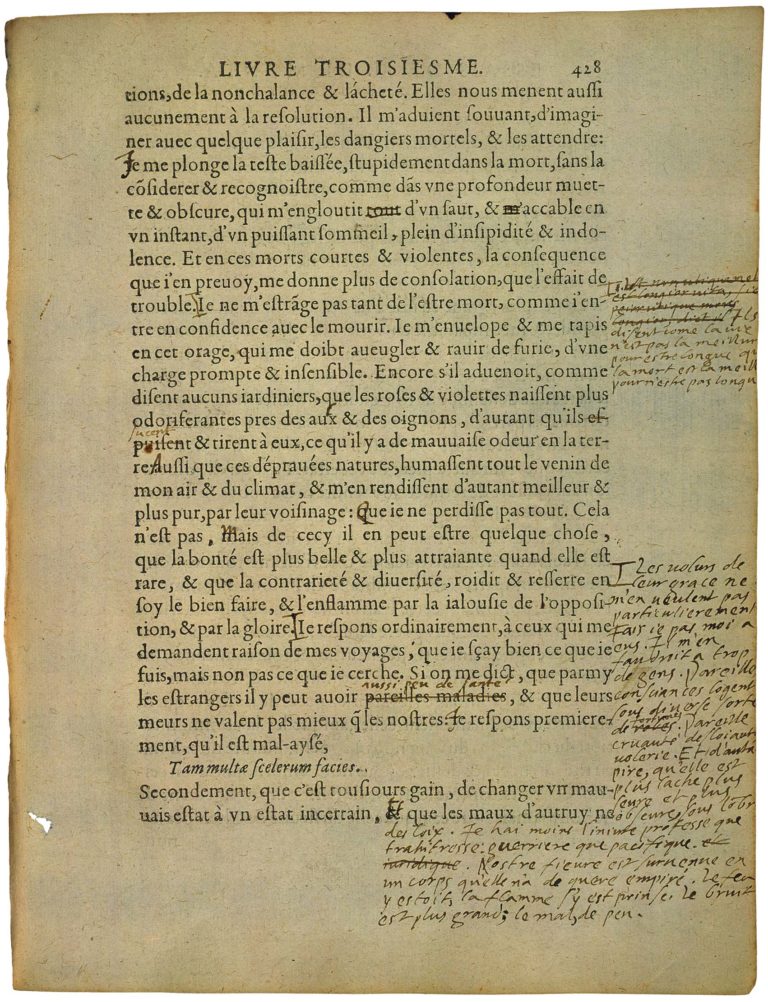 LIVRE TROISIESME. 428
tions, de la nonchalance & lácheté. Elles nous menent aussi
aucunement à la resolution. Il m'aduient souuant, d'imagi-
ner auec quelque plaisir, les dangiers mortels, & les attendre:
Je me plonge la teste baissée, stupidement dans la mort, sans la
cõsiderer & recognoistre, comme dãs vne profondeur muet-
te & obscure, qui m'engloutit tout d'vn saut, & m'accable en
vn instant, d'vn puissant sommeil, plein d'insipidité & indo-
lence. Et en ces morts courtes & violentes, la consequence
que i'en preuoy, me donne plus de consolation, que l'effait de
trouble. Ie ne m'estrãge pas tant de l'estre mort, comme i'en-
tre en confidence auec le mourir. Ie m'enuelope & me tapis
en cet orage, qui me doibt aueugler & rauir de furie, d'vne
charge prompte & insensible. Encore s'il aduenoit, comme
disent aucuns iardiniers, que les roses & violettes naissent plus
odoriferantes pres des aux & des oignons, d'autant qu'ils es-
sucent
puisent & tirent à eux, ce qu'il y a de mauuaise odeur en la ter-
re: Aussi que ces déprauées natures, humassent tout le venin de
mon air & du climat, & m'en rendissent d'autant meilleur &
plus pur, par leur voisinage: Que ie ne perdisse pas tout. Cela
n'est pas, Mais de cecy il en peut estre quelque chose,
que la bonté est plus belle & plus attraiante quand elle est
rare, & que la contrarieté & diuersité, roidit & resserre en
soy le bien faire, & l'enflamme par la ialousie de l'opposi-
tion, & par la gloire. Ie respons ordinairement, à ceux qui me
demandent raison de mes voyages, que ie sçay bien ce que ie
fuis, mais non pas ce que ie cerche. Si on me dict, que parmy
aussi peu de santé
les estrangers il y peut auoir pareilles maladies, & que leurs
meurs ne valent pas mieux q̃ les nostres: Je respons premiere-
ment, qu'il est mal-aysé,
Tam multæ scelerum facies.
Secondement, que c'est tousiours gain, de changer vn mau-
uais estat à vn estat incertain, Et que les maux d'autruy ne
Ils
disent come la vie
n'est pas la meillur
pour estre longue que
la mort est la meill
pour n'estre pas longu
Les volurs de
leur grace ne
m'en veulent pas
particulierement
Fais ie pas moi a
eus. Il m'en
faudroit a trop
de gens. Pareille
consciances logent
sous diverse sorte
de fortunes Pareille
cruauté desloiauté
volerie. Et d'auta
pire, qu'elle est
plus lache plus
seure et plus
obscure sous l'obr
des loix. Je hai moins l'iniure professe que
trahitresse: guerriere que pacifique. et
iuridique. Nostre fieure est suruenue en
un corps qu'elle n'a de guere empiré. Le feu
y estoit, la flamme s'y est prinse. le bruit
est plus grand; le mal, de peu.